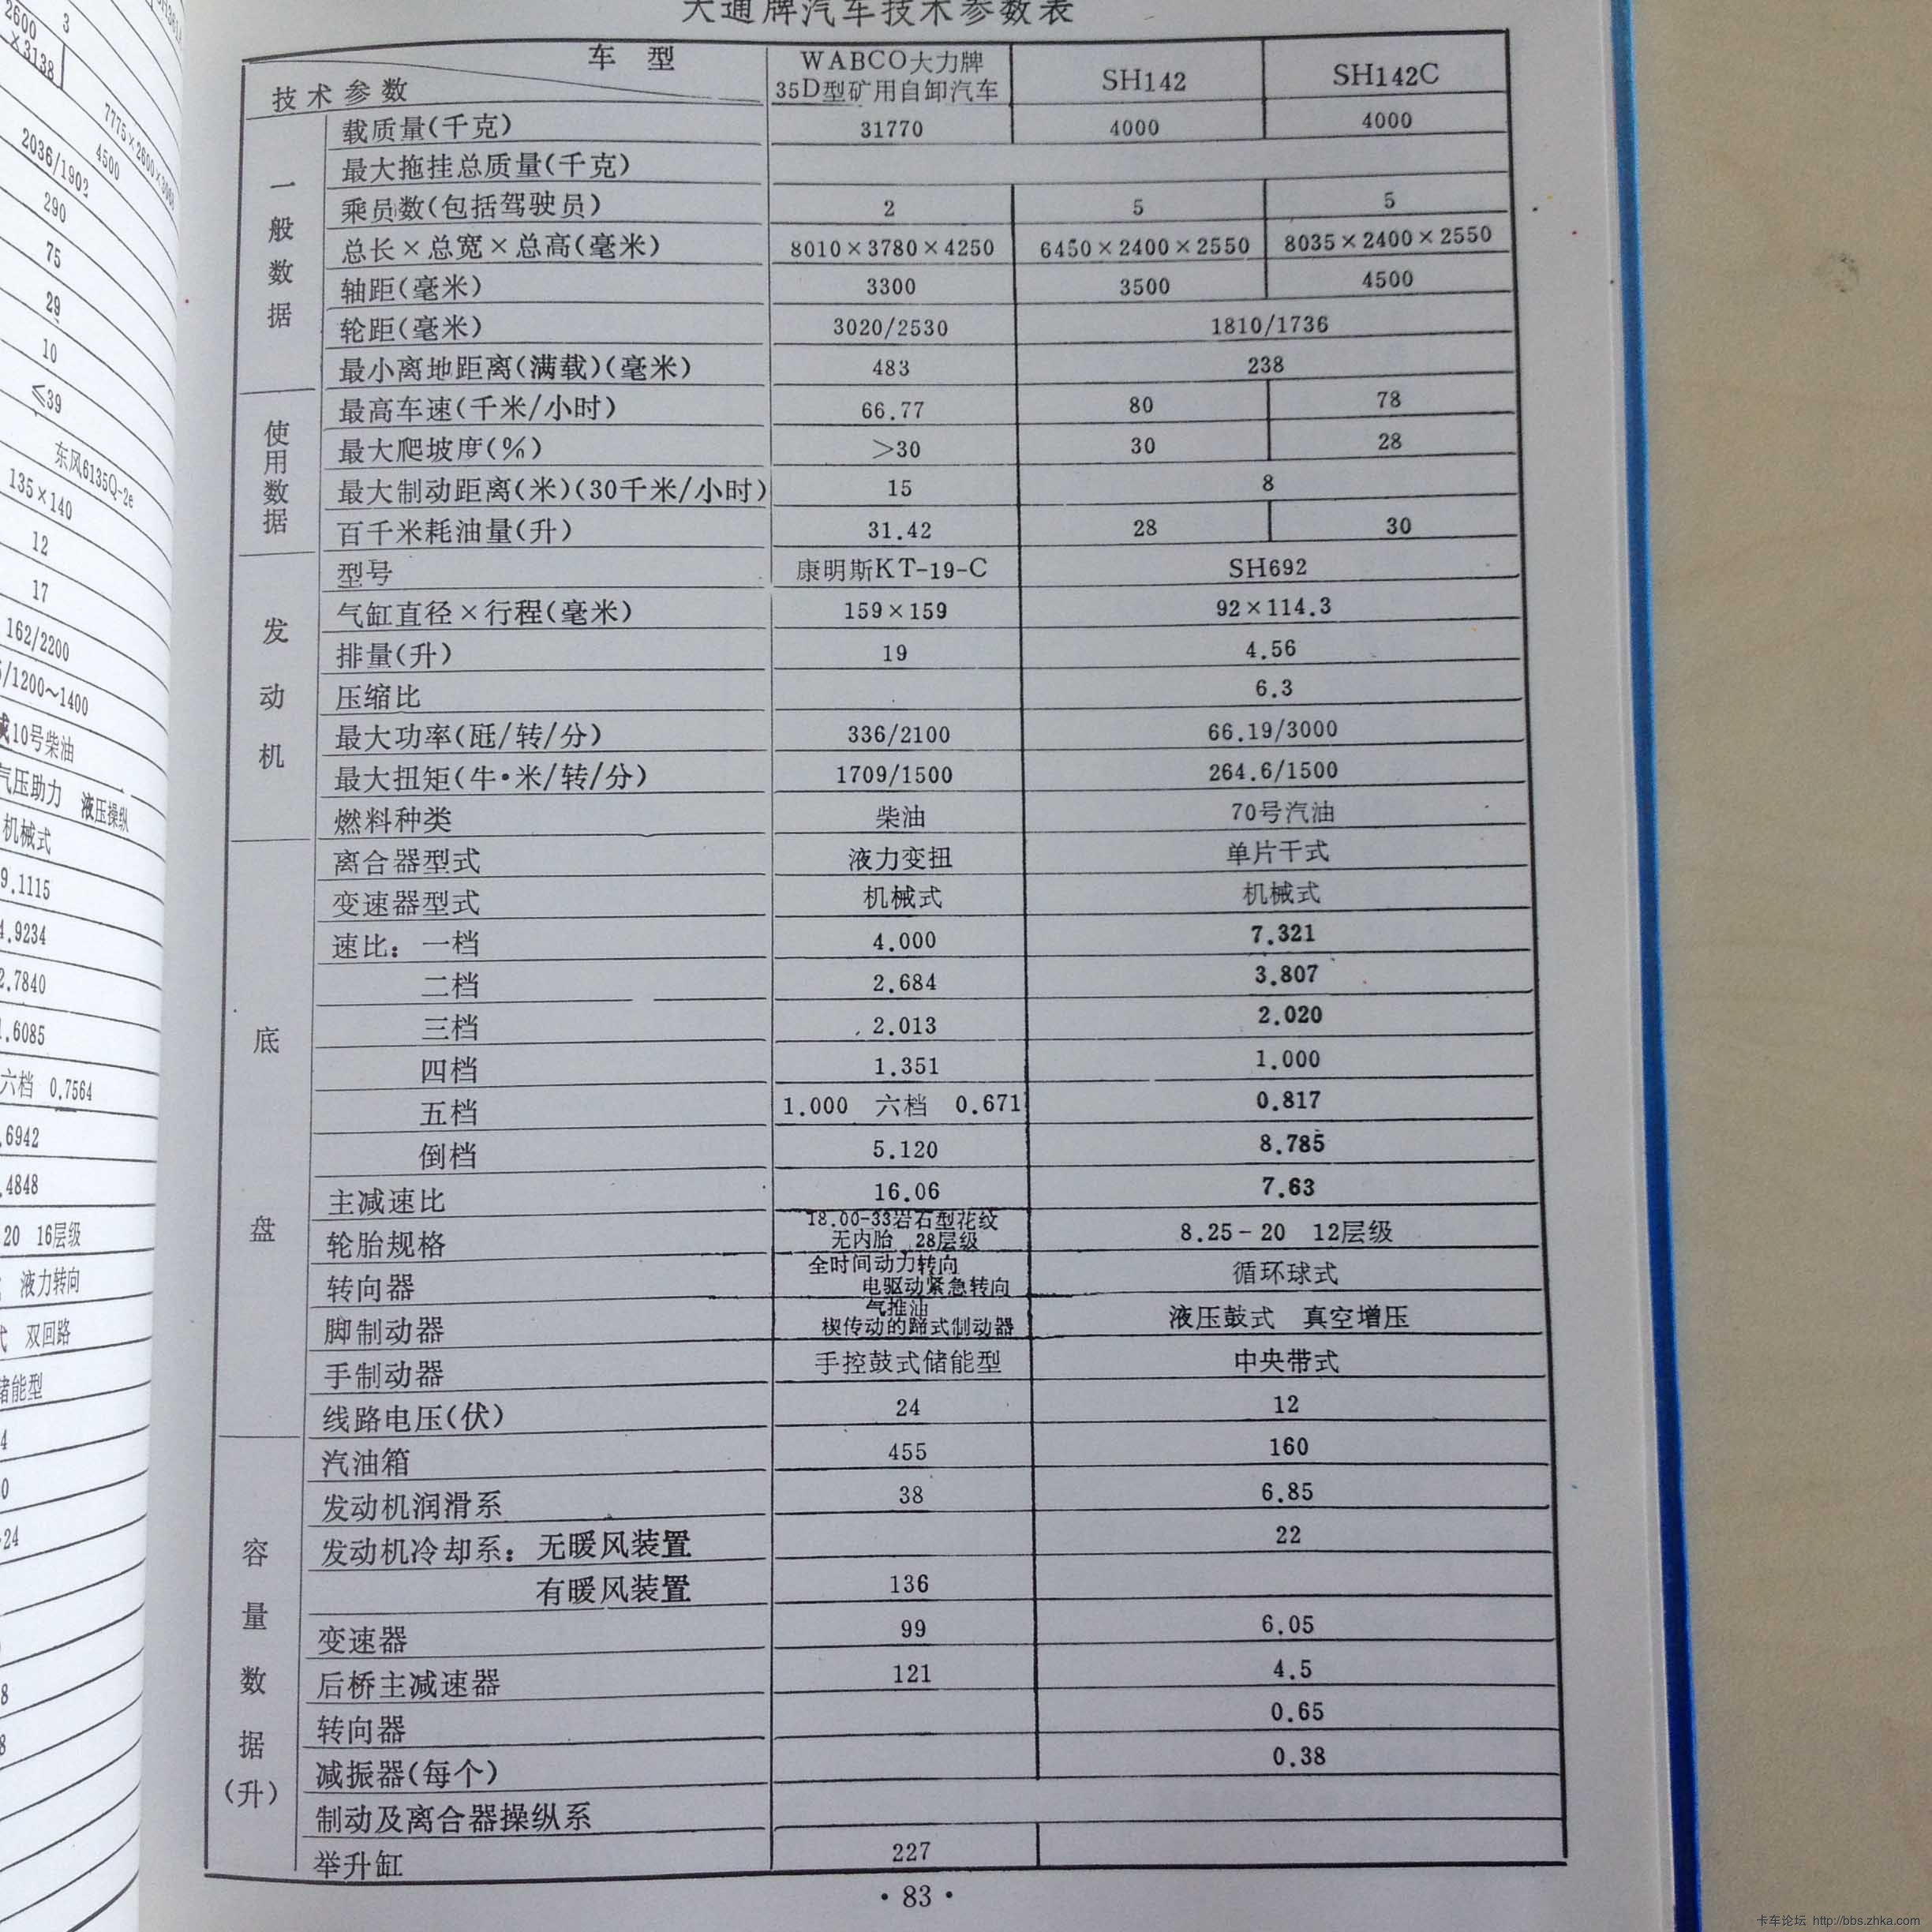 2600
3
×3138
7775×2600×3060
4500
2036/1902
290
75
29
10
≤39
东风6135Q-2e
135×140
12
17
162/2200
/1200~1400
10号柴油
气压助力 液压操纵
机械式
9.1115
4.9234
2.7840
1.6085
六档 0.7564
.6942
.4848
20 16层级
液力转向
双回路
储能型
4
0
24
8
8
大通牌汽车技术参数表
车 型 WABCO大力牌 35D型矿用自卸汽车 SH142 SH142C
技术参数
一般数据
载质量(千克) 31770 4000 4000
最大拖挂总质量(千克)
乘员数(包括驾驶员) 2 5 5
总长×总宽×总高(毫米) 8010×3780×4250 6450×2400×2550 8035×2400×2550
轴距(毫米) 3300 3500 4500
轮距(毫米) 3020/2530 1810/1736
最小离地距离(满载)(毫米) 483 238
使用数据
最高车速(千米/小时) 66.77 80 78
最大爬坡度(%) >30 30 28
最大制动距离(米)(30千米/小时) 15 8
百千米耗油量(升) 31.42 28 30
发动机
型号 康明斯KT-19-C SH692
气缸直径×行程(毫米) 159×159 92×114.3
排量(升) 19 4.56
压缩比 6.3
最大功率(瓩/转/分) 336/2100 66.19/3000
最大扭矩(牛·米/转/分) 1709/1500 264.6/1500
燃料种类 柴油 70号汽油
底盘
离合器型式 液力变扭 单片干式
变速器型式 机械式 机械式
速比：一档 4.000 7.321
二档 2.684 3.807
三档 2.013 2.020
四档 1.351 1.000
五档 1.000 六档 0.671 0.817
倒档 5.120 8.785
主减速比 16.06 7.63
轮胎规格 18.00-33岩石型花纹 无内胎 28层级 8.25-20 12层级
转向器 全时间动力转向 电驱动紧急转向 循环球式
脚制动器 气推油 楔传动的蹄式制动器 液压鼓式 真空增压
手制动器 手控鼓式储能型 中央带式
线路电压(伏) 24 12
容量数据(升)
汽油箱 455 160
发动机润滑系 38 6.85
发动机冷却系：无暖风装置 22
有暖风装置 136
变速器 99 6.05
后桥主减速器 121 4.5
转向器 0.65
减振器(每个) 0.38
制动及离合器操纵系
举升缸 227
·83·
卡车论坛 http://bbs.zhka.com